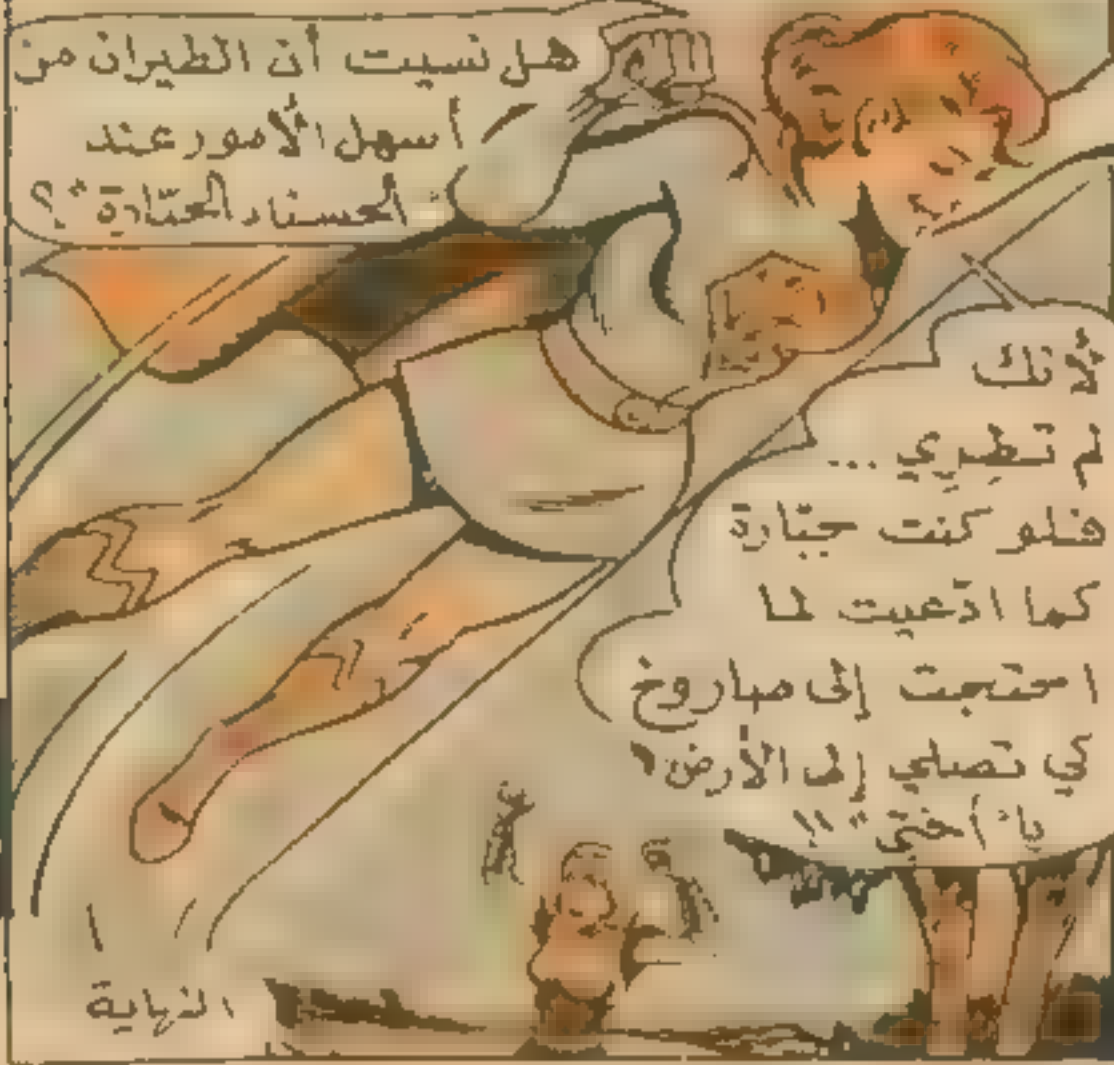 هل نسيت أن الطيران من
أسهل الأمور عند
الحسناء الجبّارة "؟
لأنك
لم تطيري ...
فلو كنت جبّارة
كما ادّعيت لما
احتجت إلى صاروخ
كي تصلي إلى الأرض
يا "أختي" !!
النهاية